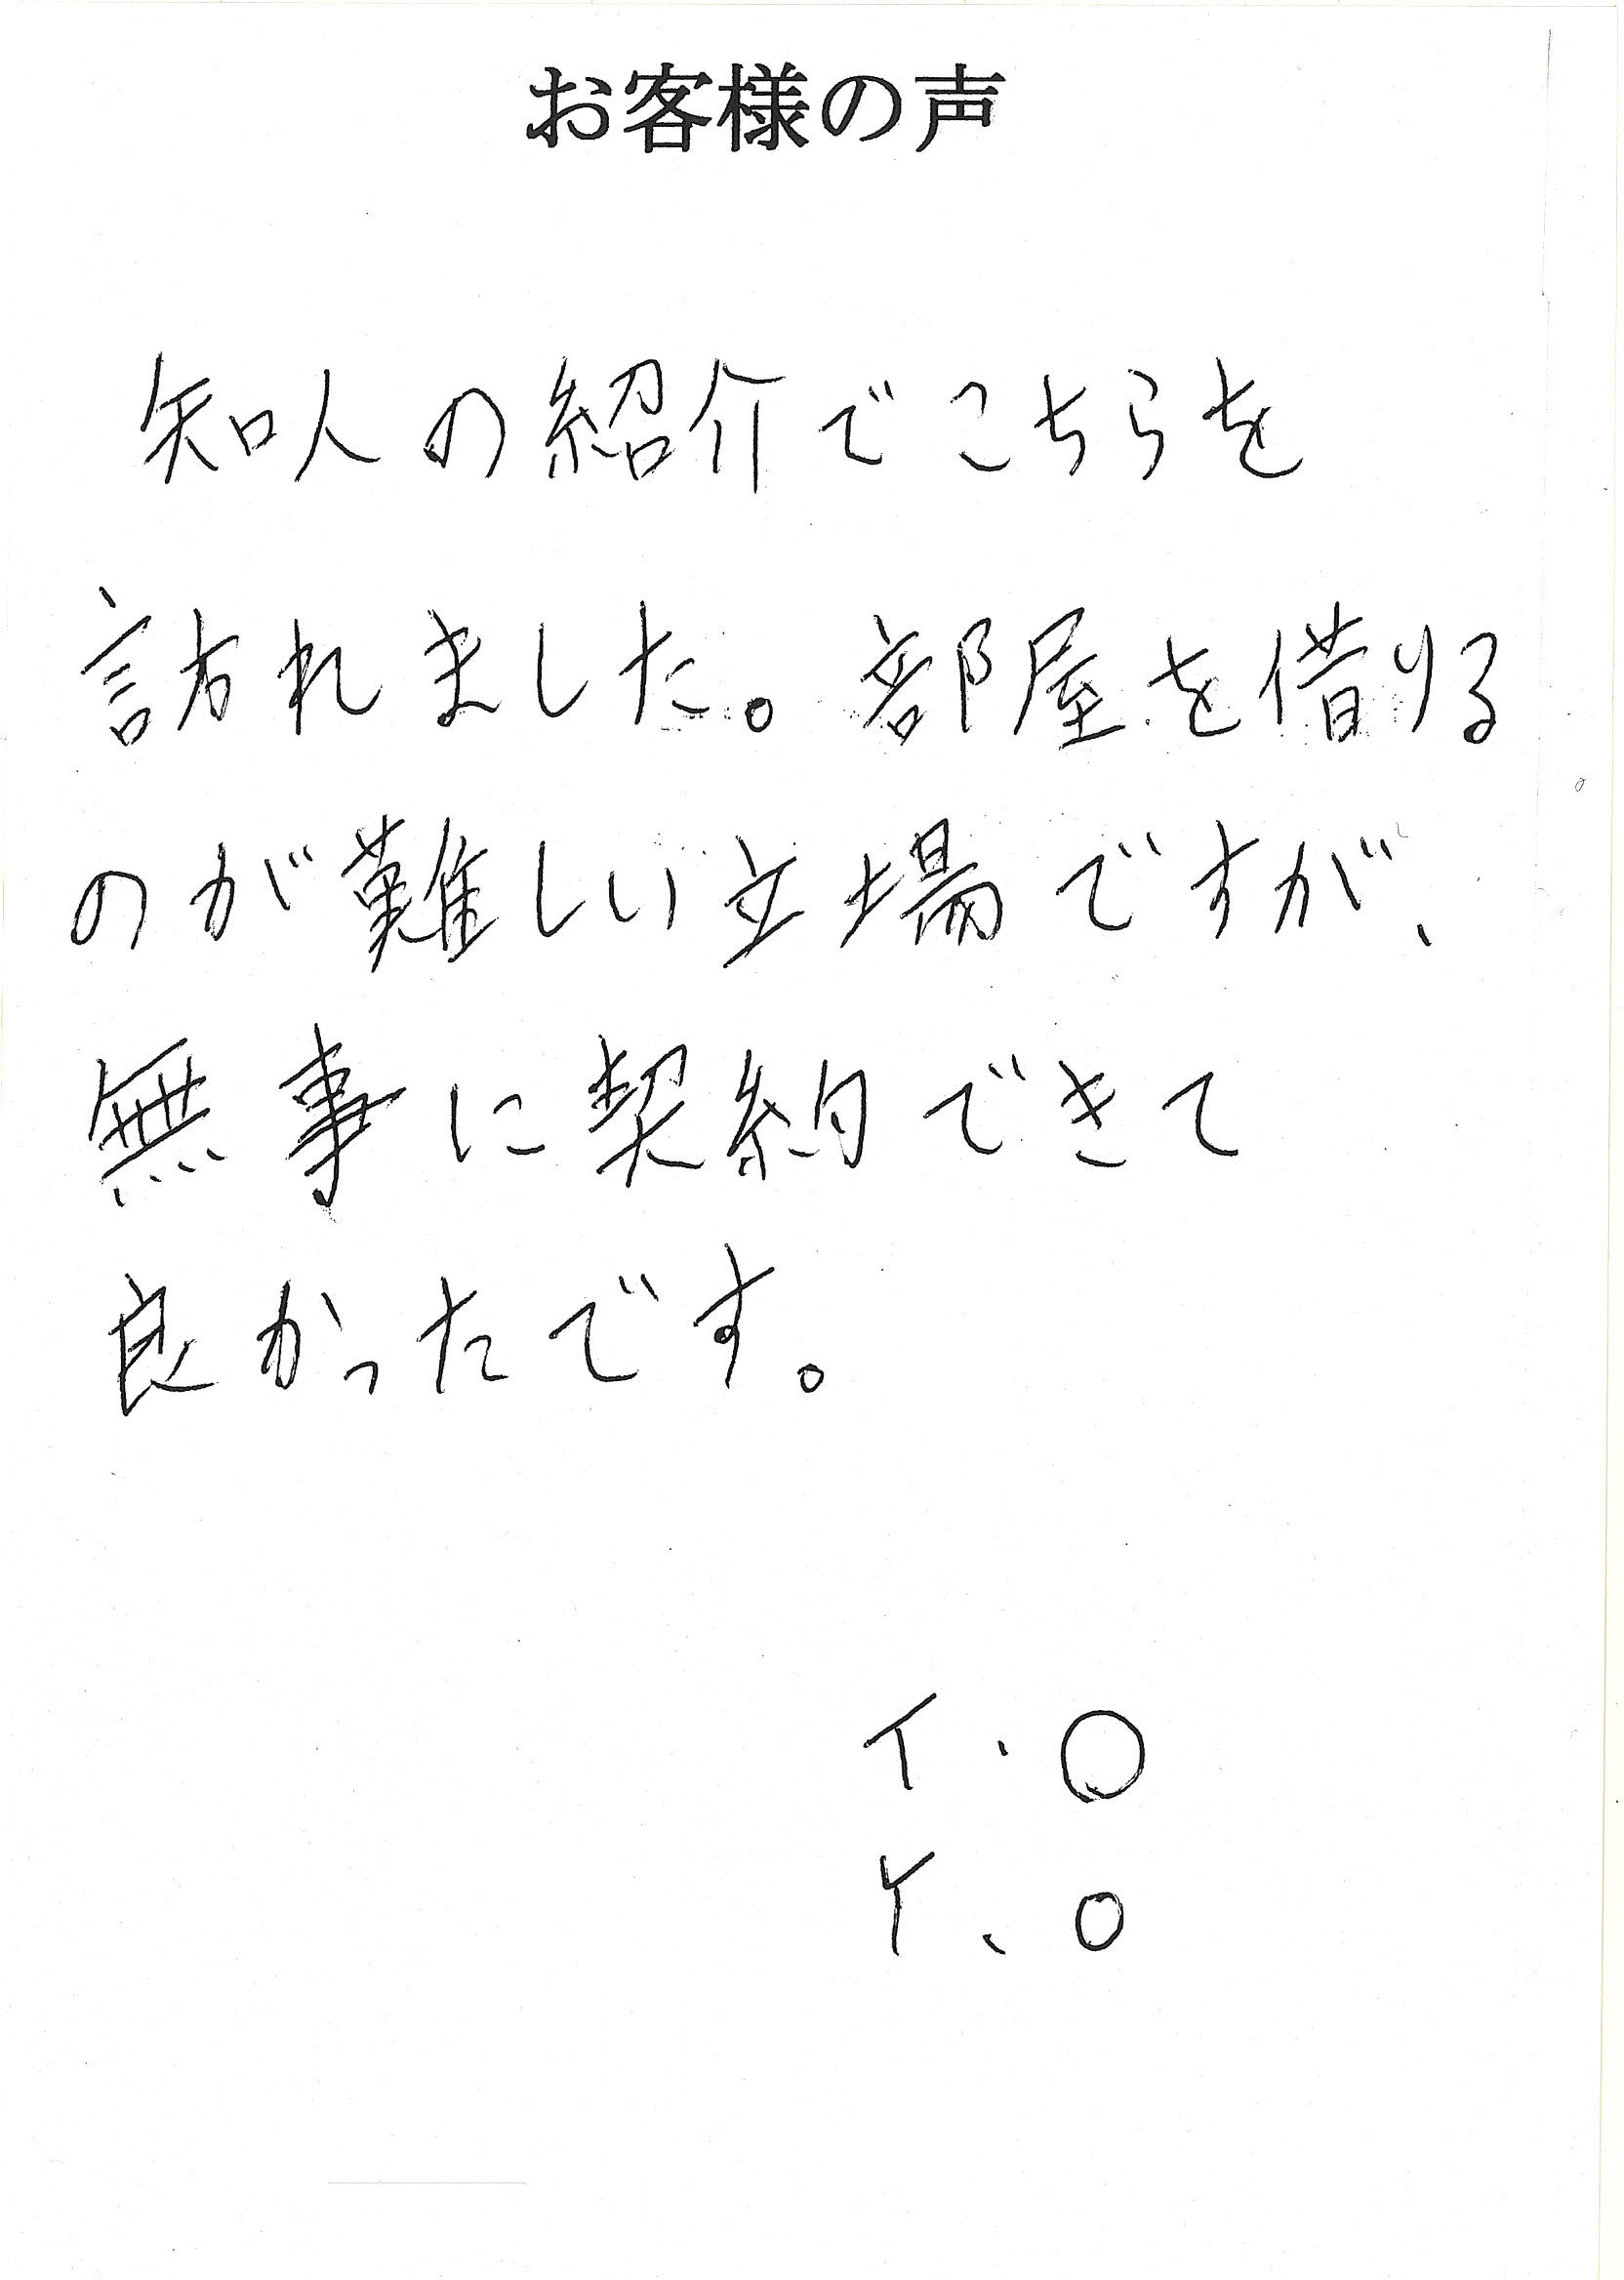 お客様の声
知人の紹介でこちらを
訪れました。部屋を借りる
のが難しい立場ですが、
無事に契約できて
良かったです。
イ.〇
Y.O